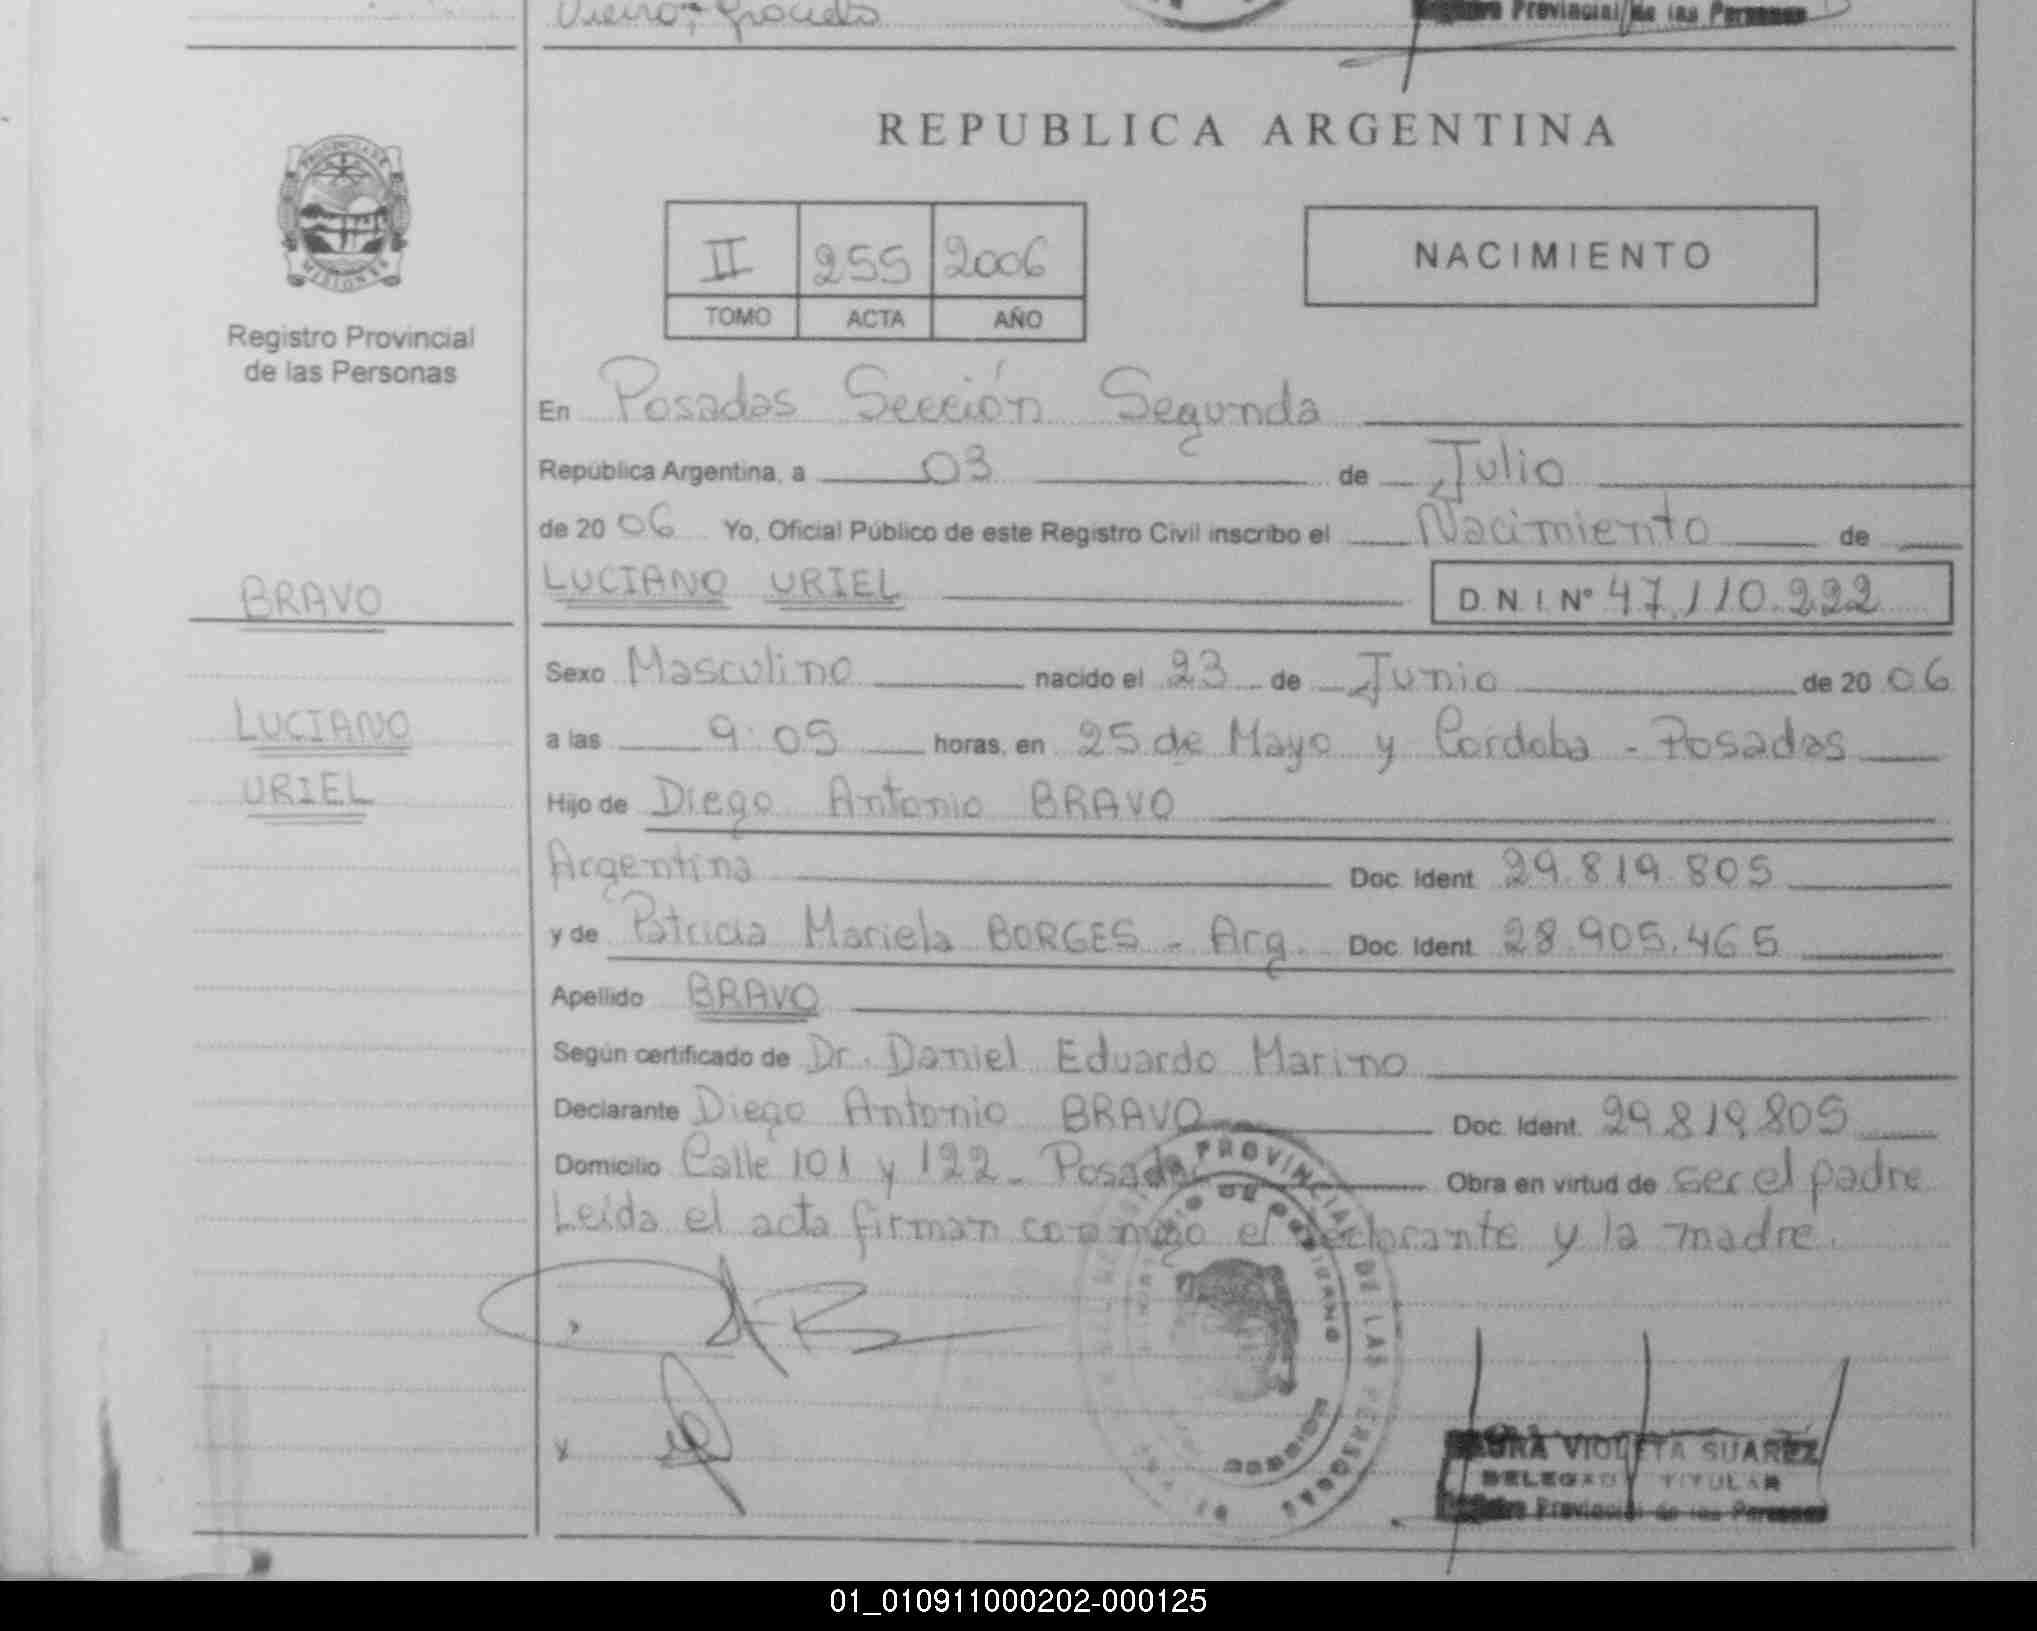 Provincial de las Personas
REPUBLICA ARGENTINA
PROVINCIA DE
MISIONES
II 255 2006
TOMO ACTA AÑO
NACIMIENTO
Registro Provincial
de las Personas
En Posadas Sección Segunda
República Argentina, a 03 de Julio
de 20 06 Yo, Oficial Público de este Registro Civil inscribo el Nacimiento de
BRAVO
LUCIANO URIEL D.N.I. Nº 47.110.222
Sexo Masculino nacido el 23 de Junio de 20 06
LUCIANO
a las 9:05 horas, en 25 de Mayo y Cordoba - Posadas
URIEL
Hijo de Diego Antonio BRAVO
Argentina Doc. Ident. 29.819.805
y de Patricia Mariela BORGES - Arg. Doc. Ident. 28.905.465
Apellido BRAVO
Según certificado de Dr. Daniel Eduardo Marino
Declarante Diego Antonio BRAVO Doc. Ident. 29.819.805
Domicilio Calle 101 y 122 - Posadas Obra en virtud de ser el padre
Leída el acta firman conmigo el declarante y la madre.
PROVINCIAL DE LAS PERSONAS
MISIONES
VIOLETA SUAREZ
DELEGADO TITULAR
Provincial de las Personas
01_010911000202-000125